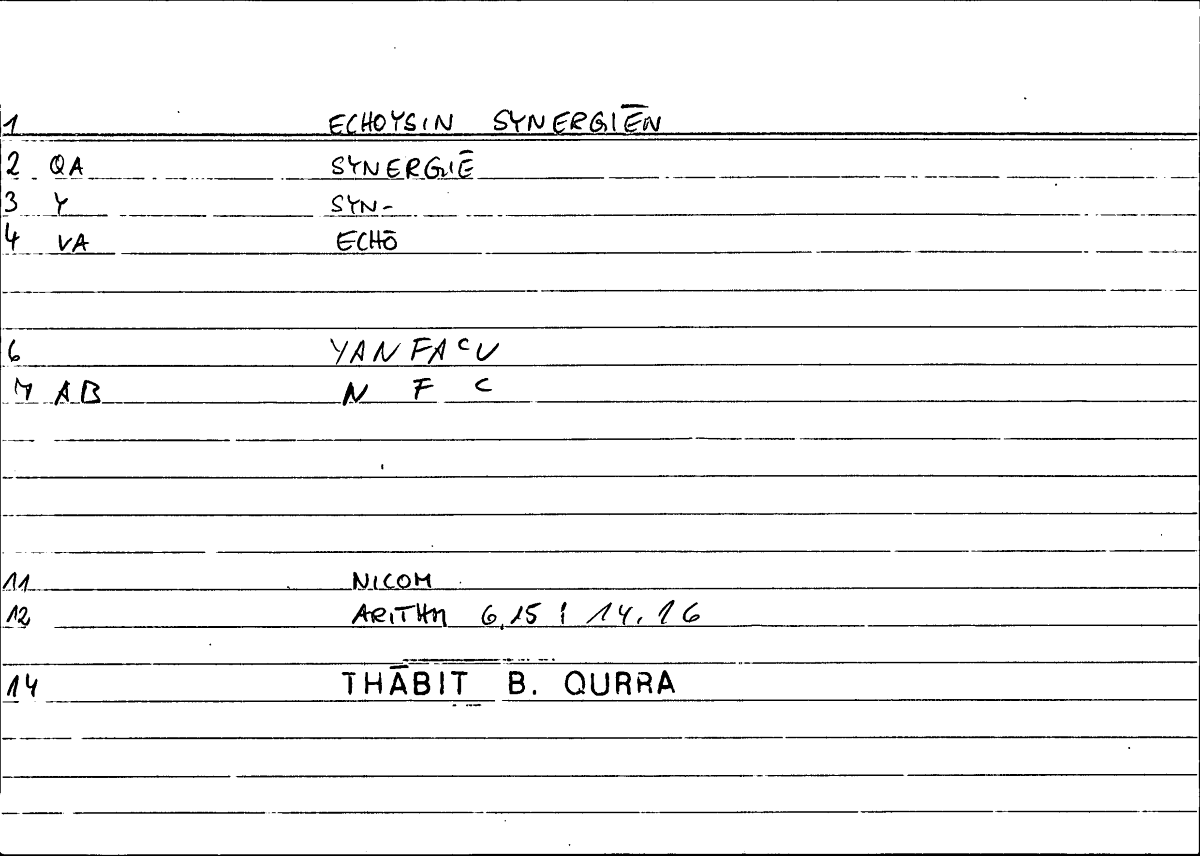 1 ECHOYSIN SYNERGIĒN
2 QA SYNERGIĒ
3 Y SYN-
4 VA ECHŌ
6 YANFAᶜU
7 AB N F ᶜ
11 NICOM
12 ARITHM 6,15 ; 14,16
14 THĀBIT B. QURRA